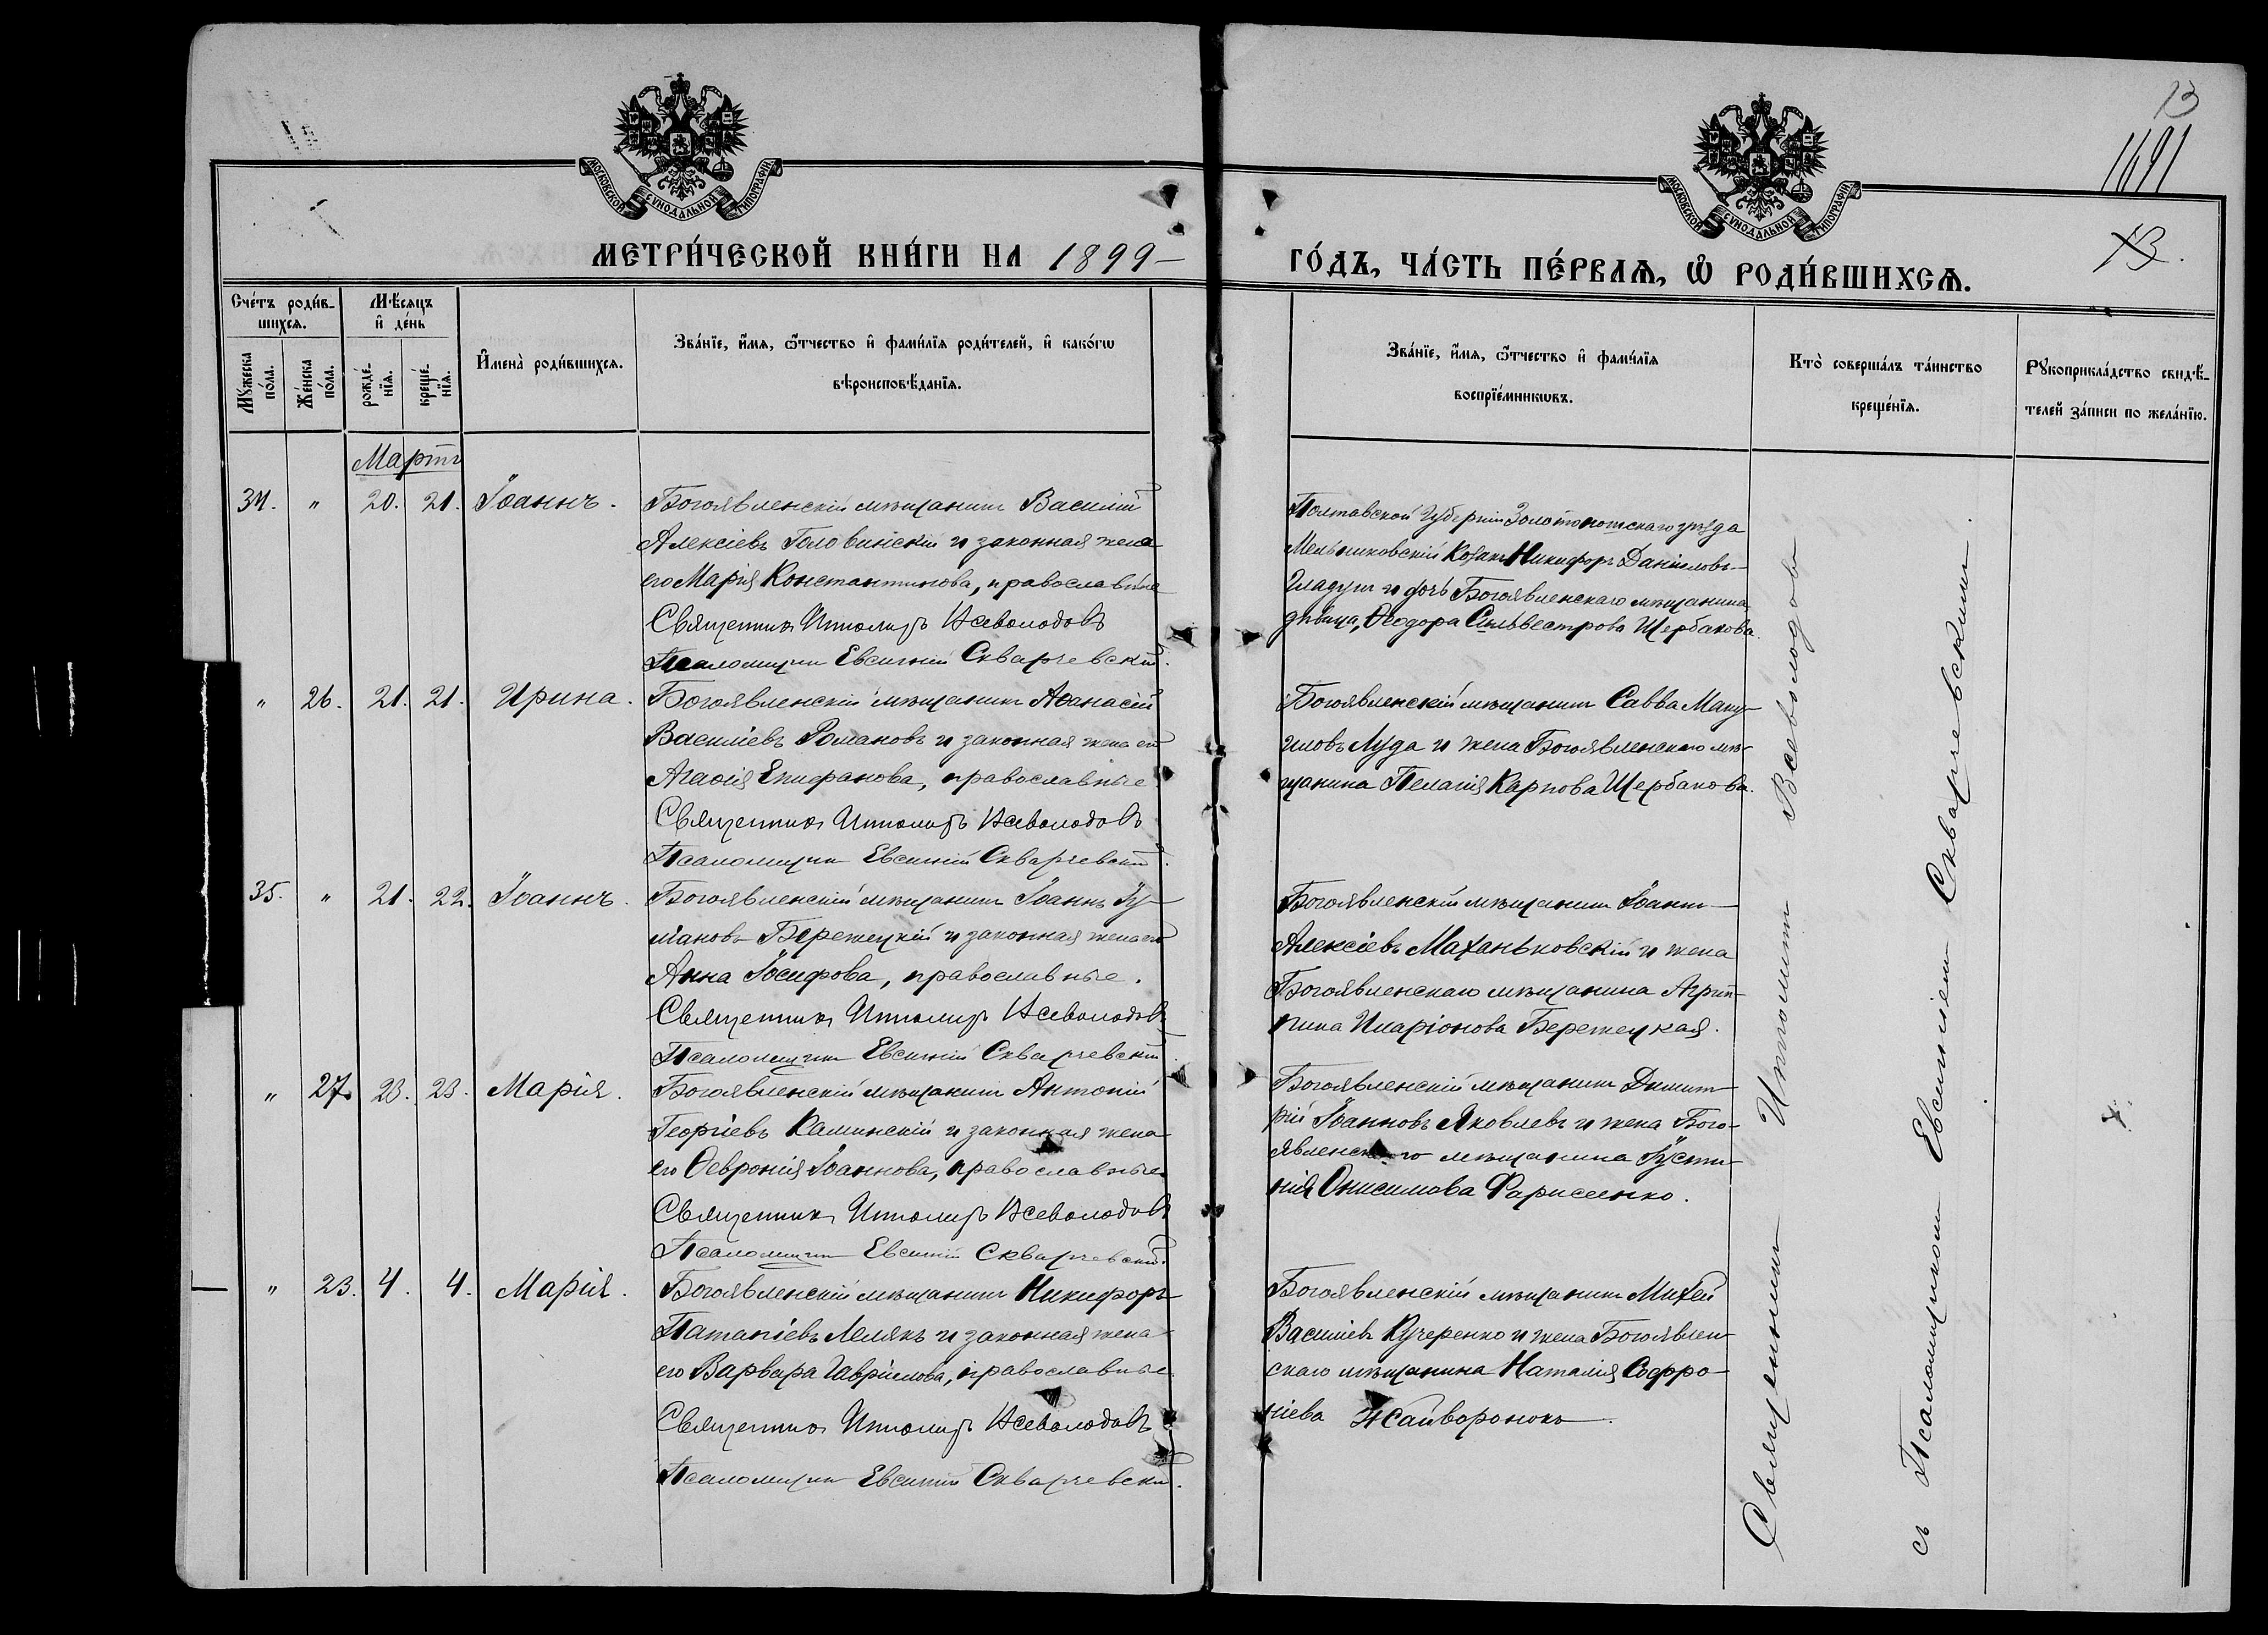 13
1691
13.
МОСКОВСКОЙ СѴНОДАЛЬНОЙ ТИПОГРАФІИ
МОСКОВСКОЙ СѴНОДАЛЬНОЙ ТИПОГРАФІИ
МЕТРИ́ЧЕСКОЙ КНИ́ГИ НА 1899 –
ГО́ДЪ, ЧА́СТЬ ПЕ́РВАѦ, Ѡ҆ РОДИ́ВШИХСѦ.
Сче́тъ роди́в-
шихсѧ.
Мꙋ́жеска по́ла.
Же́нска по́ла.
Мѣ́сѧцъ и҆ де́нь
рожде́-нїѧ.
креще́-нїѧ.
И҆мена̀ роди́вшихсѧ.
Зва́нїе, и҆́мѧ, ѻ҆́тчество и҆ фами́лїѧ роди́телей, и҆ како́гѡ
вѣроисповѣ́данїѧ.
Зва́нїе, и҆́мѧ, ѻ҆́тчество и҆ фами́лїѧ
воспрїе́мникѡвъ.
Кто̀ соверша́лъ та́инство
креще́нїѧ.
Рꙋкоприкла́дство свидѣ́-
телей за́писи по жела́нїю.
Мартъ
34. " 20. 21. Іоаннъ.
Богоявленскій мѣщанинъ Василій
Алексіевъ Головинскій и законная жена
его Марія Константинова, православные
Священникъ Ипполитъ Всеволодовъ
Псаломщикъ Евсигній Скварчевскій.
Полтавской Губерніи Золотоношскаго уѣзда
Мельниковскій Козакъ Никифоръ Даніиловъ
Гладушъ и дочь Богоявленскаго мѣщанина
дѣвица, Ѳеодора Сильвестрова Щербакова.
" 26. 21. 21. Ирина.
Богоявленскій мѣщанинъ Аѳанасій
Василіевъ Романовъ и законная жена его
Агаѳія Епифанова, православные.
Священникъ Ипполитъ Всеволодовъ
Псаломщикъ Евсигній Скварчевскій.
Богоявленскій мѣщанинъ Савва Ману-
иловъ Луда и жена Богоявленскаго мѣ-
щанина Пелагія Карпова Щербакова.
35. " 21. 22. Іоаннъ.
Богоявленскій мѣщанинъ Іоаннъ Іу-
ліановъ Бережецкій и законная жена его
Анна Іосифова, православные.
Священникъ Ипполитъ Всеволодовъ
Псаломщикъ Евсигній Скварчевскій.
Богоявленскій мѣщанинъ Іоаннъ
Алексіевъ Маханьковскій и жена
Богоявленскаго мѣщанина Агрип-
пина Иларіонова Бережецкая.
" 27. 23. 23. Марія.
Богоявленскій мѣщанинъ Антоній
Георгіевъ Каминскій и законная жена
его Ѳевронія Іоаннова, православные.
Священникъ Ипполитъ Всеволодовъ
Псаломщикъ Евсигній Скварчевскій.
Богоявленскій мѣщанинъ Димит-
рій Іоанновъ Яковлевъ и жена Бого-
явленскаго мѣщанина Іусти-
нія Онисимова Фарисеенко.
" 23. 4. 4. Марія.
Богоявленскій мѣщанинъ Никифоръ
Патапіевъ Лемякъ и законная жена
его Варвара Гавріилова, православные.
Священникъ Ипполитъ Всеволодовъ
Псаломщикъ Евсигній Скварчевскій.
Богоявленскій мѣщанинъ Михей
Василіевъ Кучеренко и жена Богоявлен-
скаго мѣщанина Наталія Софро-
ніева Жайворонокъ.
Священникъ Ипполитъ Всеволодовъ
съ Псаломщикомъ Евсигніемъ Скварчевскимъ.